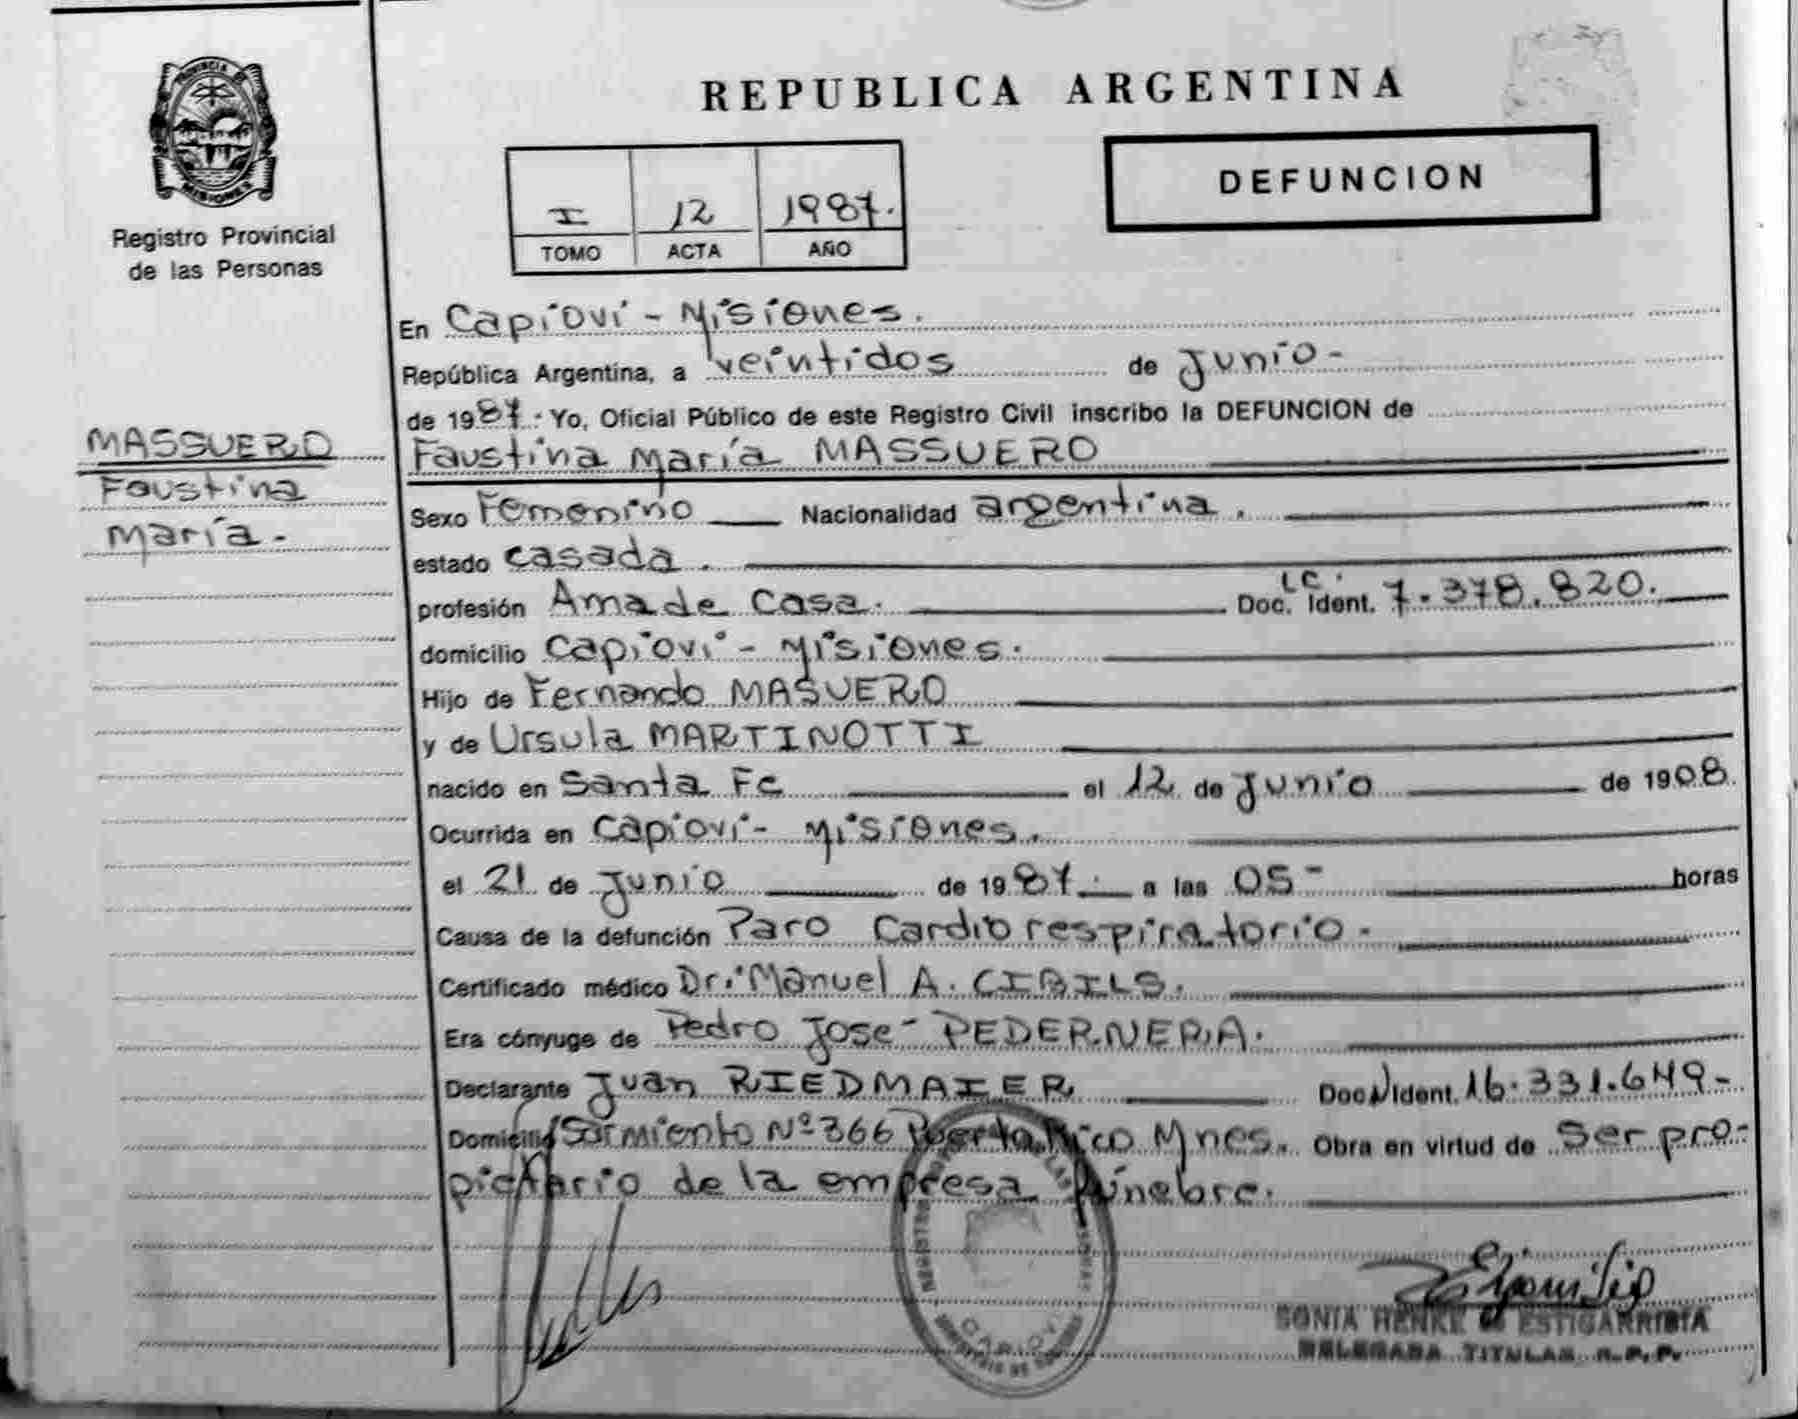 PROVINCIA DE
MISIONES
Registro Provincial
de las Personas
MASSUERO
Faustina
María.-
REPUBLICA ARGENTINA
I 12 1987.
TOMO ACTA AÑO
DEFUNCION
En Capioví - Misiones.
República Argentina, a veintidos de Junio-
de 1987.- Yo, Oficial Público de este Registro Civil inscribo la DEFUNCION de
Faustina María MASSUERO
Sexo Femenino Nacionalidad argentina.
estado casada.
profesión Ama de Casa. Doc. Ident. L.C. 7.378.820.
domicilio Capioví - Misiones.
Hijo de Fernando MASUERO
y de Ursula MARTINOTTI
nacido en Santa Fe el 12 de Junio de 1908.
Ocurrida en Capioví - Misiones.
el 21 de Junio de 1987.- a las 05- horas
Causa de la defunción Paro Cardiorespiratorio.-
Certificado médico Dr. Manuel A. CIBILS.
Era cónyuge de Pedro José PEDERNERA.
Declarante Juan RIEDMAIER Doc. N Ident. 16.331.649-
Domicilio Sarmiento Nº 366 Puerto Rico Mnes. Obra en virtud de Ser pro-
pietario de la empresa fúnebre.
CAPIOVI
SONIA HENKE de ESTIGARRIBIA
DELEGADA TITULAR R.P.P.